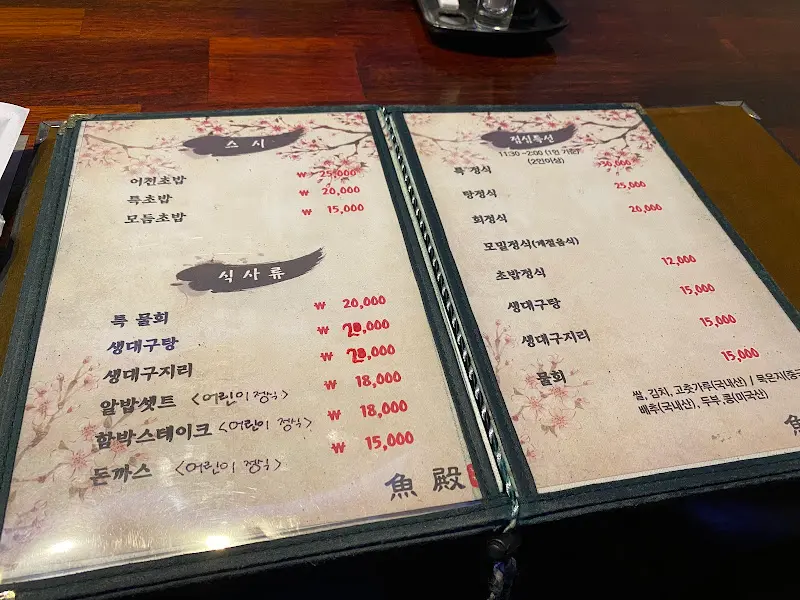 스시
어전초밥 ₩ 25,000
특초밥 ₩ 20,000
모듬초밥 ₩ 15,000
식사류
특 물회 ₩ 20,000
생대구탕 ₩ 20,000
생대구지리 ₩ 20,000
알밥셋트 <어린이 정식> ₩ 18,000
함박스테이크 <어린이 정식> ₩ 18,000
돈까스 <어린이 정식> ₩ 15,000
魚殿
점심특선
11:30 ~2:00 (1인 가능)
(2인이상)
특 정식 30,000
탕정식 25,000
회정식 20,000
모밀정식(계절음식)
초밥정식 12,000
생대구탕 15,000
생대구지리 15,000
물회 15,000
쌀, 김치, 고춧가루(국내산) / 묵은지(중국
배추(국내산), 두부, 콩(미국산)
魚